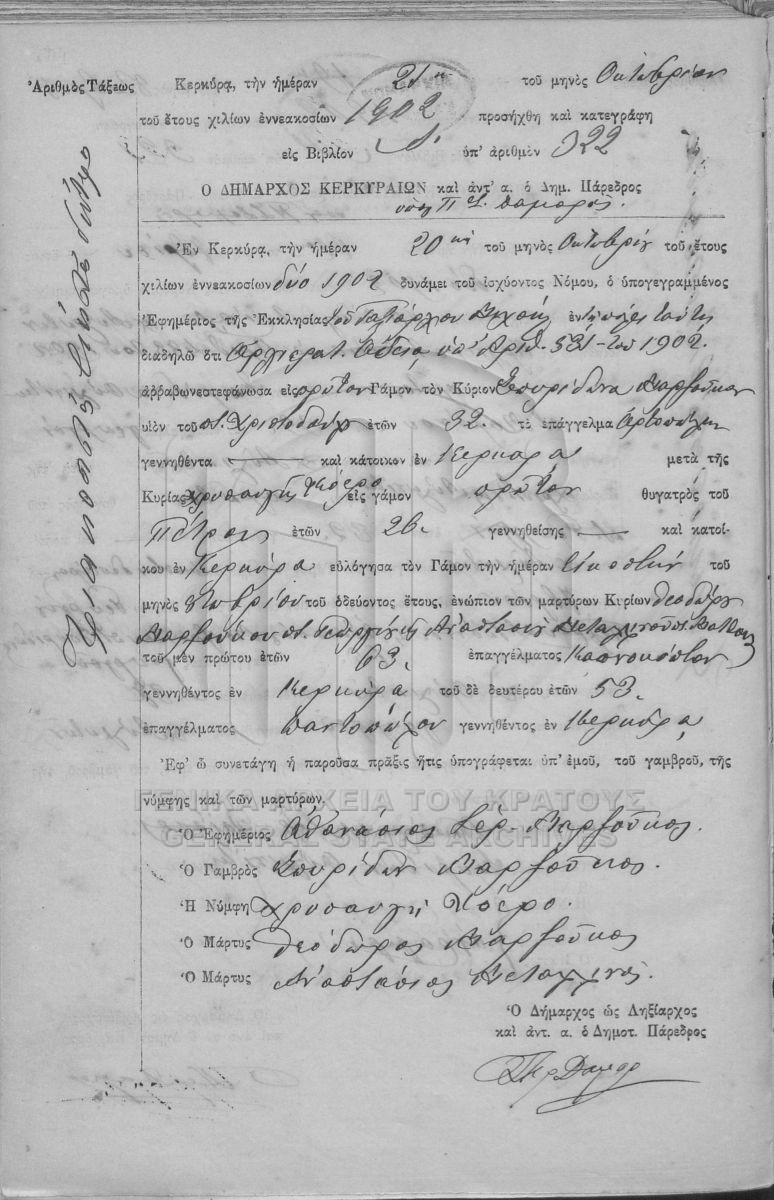 Ἀριθμὸς Τάξεως
Κερκύρᾳ, τὴν ἡμέραν 21ην τοῦ μηνὸς Ὀκτωβρίου
τοῦ ἔτους χιλίων ἐννεακοσίων 1902 προσήχθη καὶ κατεγράφη
εἰς Βιβλίον ὑπ' ἀριθμὸν 322
Ο ΔΗΜΑΡΧΟΣ ΚΕΡΚΥΡΑΙΩΝ καὶ ἀντ' α. ὁ Δημ. Πάρεδρος
Ἐν Κερκύρᾳ, τὴν ἡμέραν 20ην τοῦ μηνὸς Ὀκτωβρίου τοῦ ἔτους
χιλίων ἐννεακοσίων δύο 1902 δυνάμει τοῦ ἰσχύοντος Νόμου, ὁ ὑπογεγραμμένος
Ἐφημέριος τῆς Ἐκκλησίας τοῦ Ταξιάρχου Μιχαήλ ἐν τῇ πόλει ταύτῃ
διαδηλῶ ὅτι Ἀρχιερατ. Ἀδείᾳ ὑπ' Ἀριθ. 531 - του 1902.
ἀῤῥαβωνεστεφάνωσα εἰς πρῶτον Γάμον τὸν Κύριον Σπυρίδωνα Βαρβοῦκον
υἱὸν τοῦ π. Χριστοδούλου ἐτῶν 32. τὸ ἐπάγγελμα Ἀρτοπώλην
γεννηθέντα — καὶ κάτοικον ἐν Κερκύρᾳ μετὰ τῆς
Κυρίας Χρυσαυγῆς Κόερο εἰς γάμον πρῶτον θυγατρὸς τοῦ
Πέτρου ἐτῶν 26. γεννηθείσης — καὶ κατοί-
κου ἐν Κερκύρᾳ εὐλόγησα τὸν Γάμον τὴν ἡμέραν εἰκοστήν τοῦ
μηνὸς 8βρίου τοῦ ὁδεύοντος ἔτους, ἐνώπιον τῶν μαρτύρων Κυρίων Θεοδώρου
Βαρβούκου π. Γεωργίου καὶ Ἀναστασίου
τοῦ μὲν πρώτου ἐτῶν 63. ἐπαγγέλματος Καπνοκόπτου
γεννηθέντος ἐν Κερκύρᾳ τοῦ δὲ δευτέρου ἐτῶν 53.
ἐπαγγέλματος παντοπώλου γεννηθέντος ἐν Κερκύρᾳ
Ἐφ' ᾧ συνετάγη ἡ παροῦσα πρᾶξις ἥτις ὑπογράφεται ὑπ' ἐμοῦ, τοῦ γαμβροῦ, τῆς
νύμφης καὶ τῶν μαρτύρων.
ΓΕΝΙΚΑ ΑΡΧΕΙΑ ΤΟΥ ΚΡΑΤΟΥΣ
GENERAL STATE ARCHIVES
Ὁ Ἐφημέριος Ἀθανάσιος Ἱερ. Βαρβοῦκος.
Ὁ Γαμβρὸς Σπυρίδων Βαρβοῦκος.
Ἡ Νύμφη Χρυσαυγή Κόερο.
Ὁ Μάρτυς Θεόδωρος Βαρβοῦκος
Ὁ Μάρτυς Ἀναστάσιος
Ὁ Δήμαρχος ὡς Ληξίαρχος
καὶ ἀντ. α. ὁ Δημοτ. Πάρεδρος